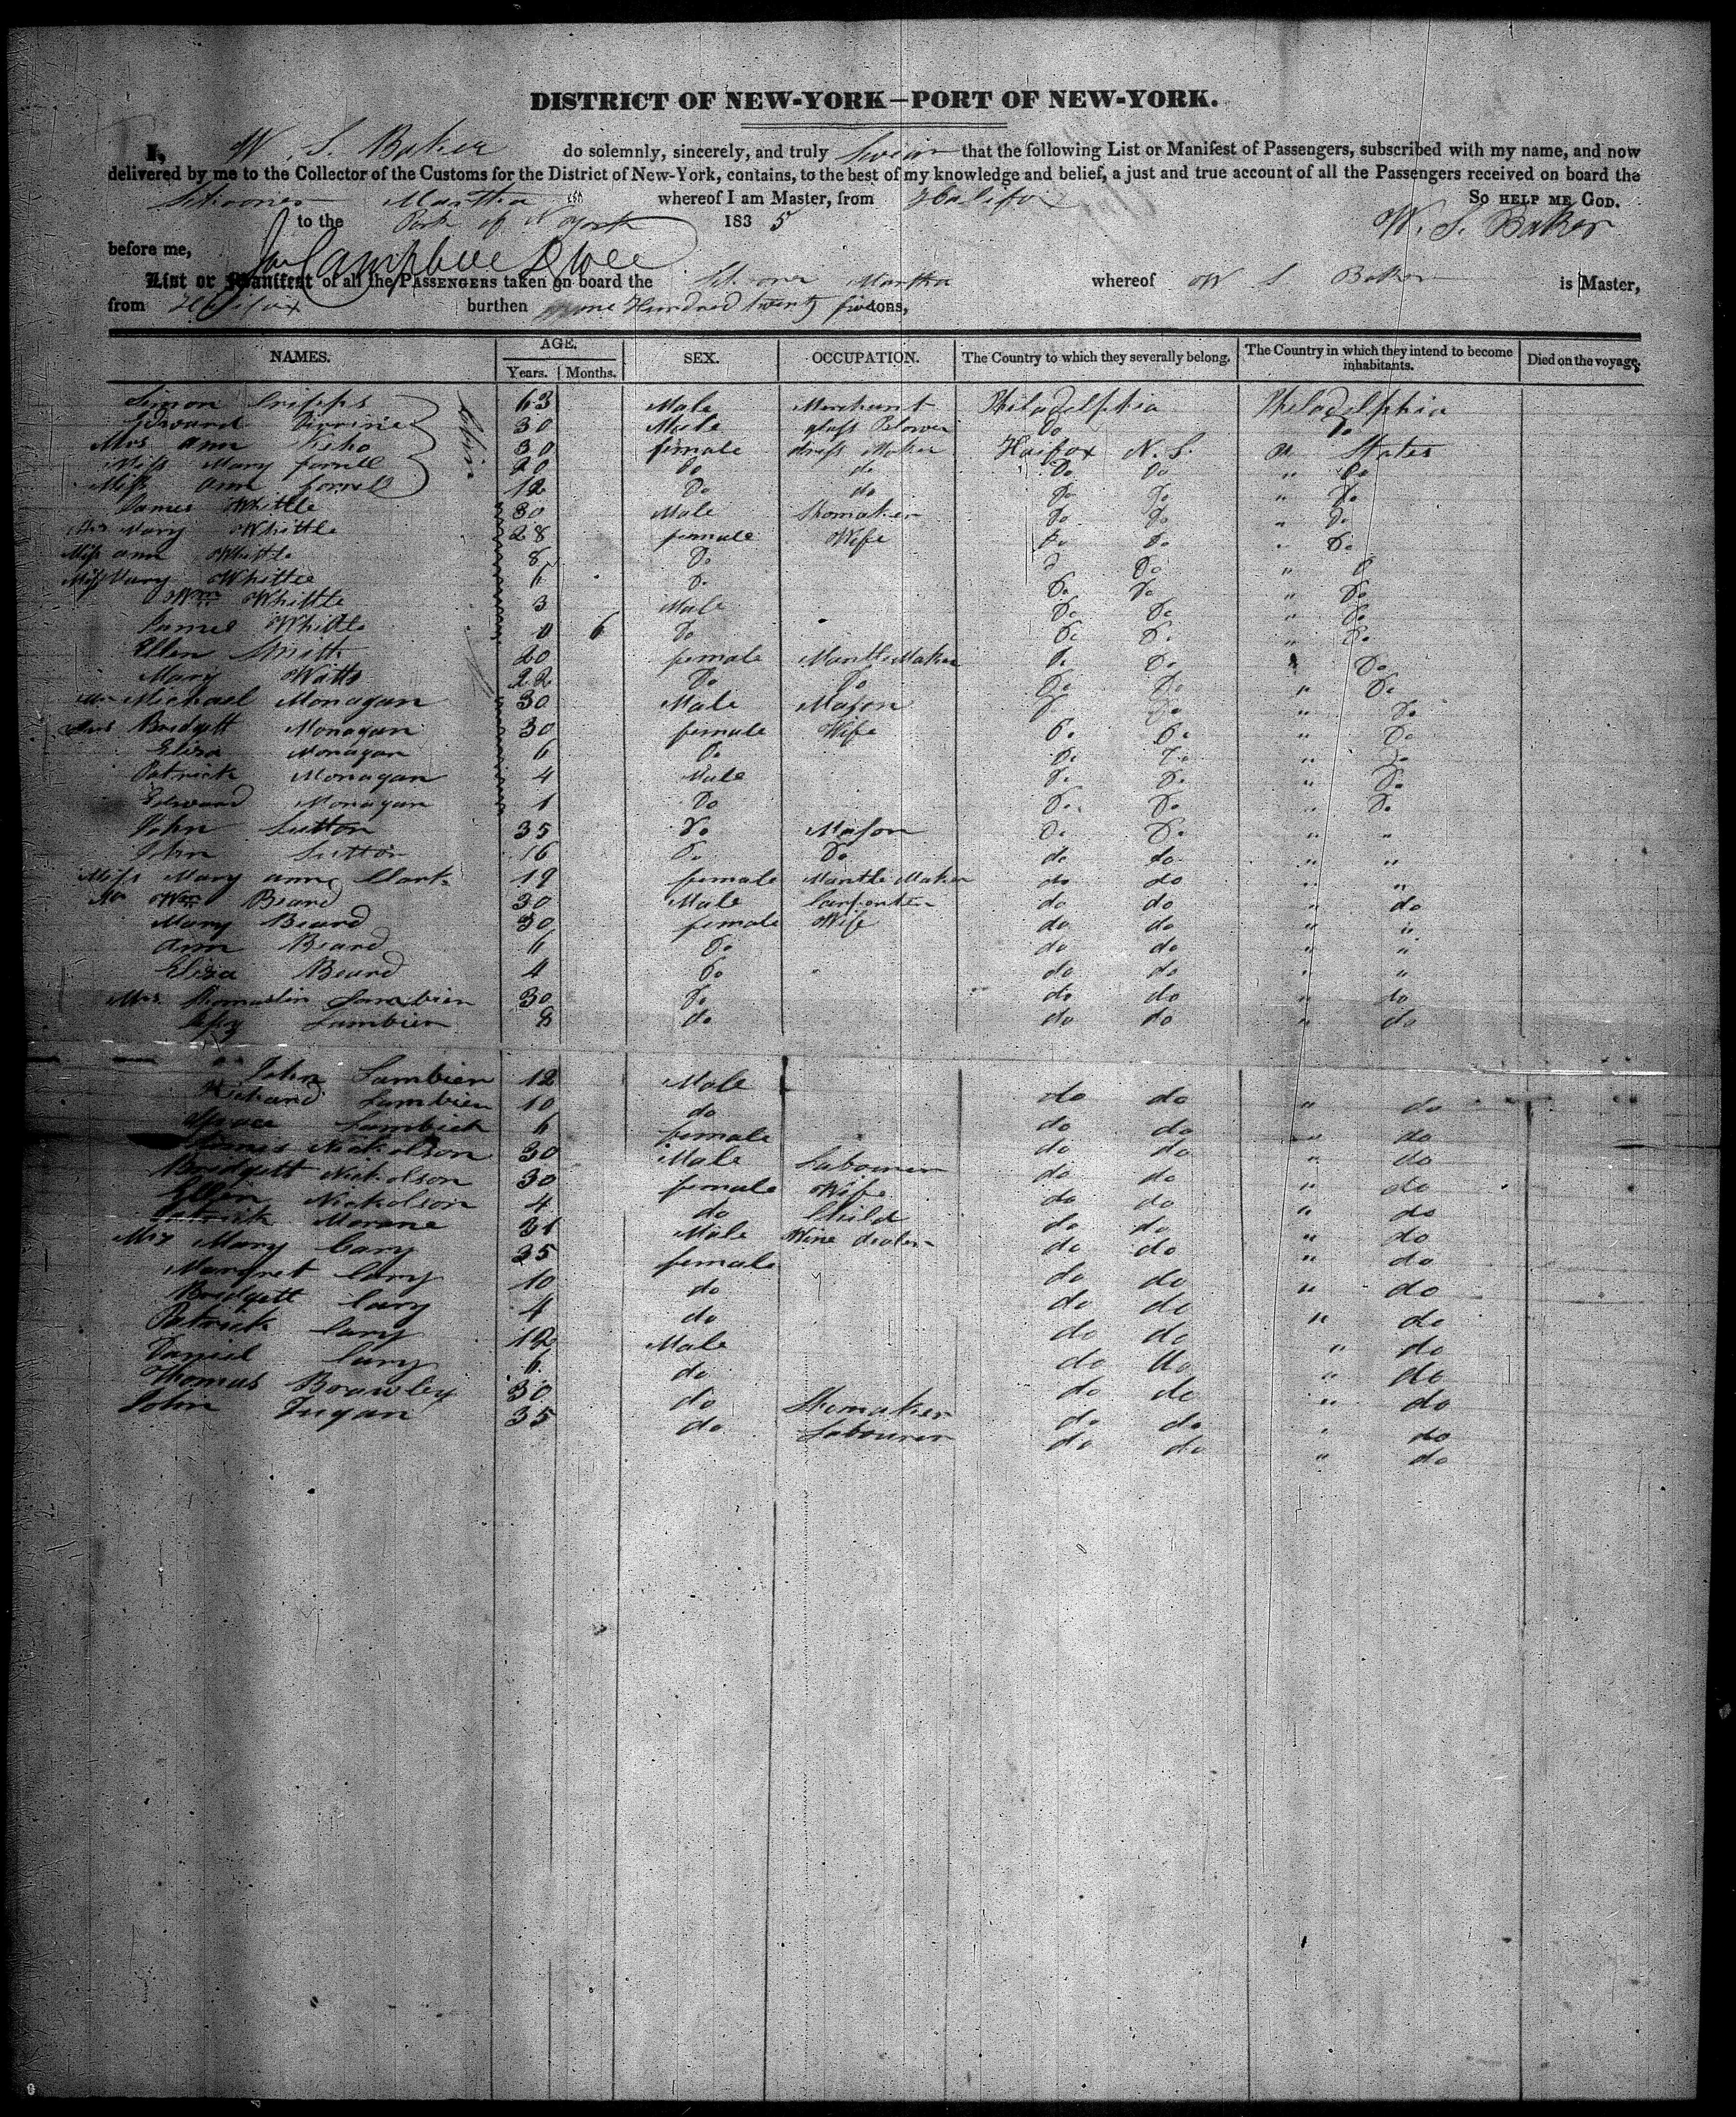 DISTRICT OF NEW-YORK—PORT OF NEW-YORK.
I, W. S. Baker do solemnly, sincerely, and truly swear that the following List or Manifest of Passengers, subscribed with my name, and now
delivered by me to the Collector of the Customs for the District of New-York, contains, to the best of my knowledge and belief, a just and true account of all the Passengers received on board the
Schooner Martha whereof I am Master, from Halifax So HELP ME GOD.
to the Port of N York 183 5 W. S. Baker
before me,
List or Manifest of all the PASSENGERS taken on board the Schooner Martha whereof W S Baker is Master,
from Halifax burthen one Hundred twenty five tons,
NAMES. AGE. SEX. OCCUPATION. The Country to which they severally belong. The Country in which they intend to become inhabitants. Died on the voyage.
Years. Months.
Simon Cripps 63 Male Merchant Philadelphia Philadelphia
Edward 30 Male glass Blower Do Do
Mrs Ann Keho 30 female dress Maker Halifax N. S. U States
Miss Mary forrell 20 Do do Do Do " Do
Miss Ann forrell 12 Do do Do Do " Do
Cabin
James Whittle 30 Male Shomaker Do Do " Do
Mrs Mary Whittle 28 female Wife Do Do " Do
Miss Ann Whittle 8 Do Do Do " Do
Miss Mary Whittle 6 Do Do Do " Do
Wm Whittle 3 Male Do Do " Do
James Whittle 0 6 Do Do Do " Do
Ellen Smith 20 female Mantle Maker Do Do " Do
Mary Watts 22 Do Do Do Do " Do
Mr Michael Monagan 30 Male Mason Do Do " Do
Mrs Bridgett Monagan 30 female Wife Do Do " Do
Eliza Monagan 6 Do Do Do " Do
Patrick Monagan 4 Male Do Do " Do
Edward Monagan 1 Do Do Do " Do
John Sutton 35 Do Mason Do Do " "
John Sutton 16 Do Do do do " "
Miss Mary Anne Clark 19 female Mantle Maker do do " "
Mr Wm Beard 30 Male Carpenter do do " do
Mary Beard 30 female Wife do do " "
Ann Beard 6 Do do do " "
Eliza Beard 4 Do do do " "
Mrs Lambien 30 Do do do " do
Lambien 8 do do do " do
John Lambien 12 Male do do " do
Richard Lambien 10 do do do " do
Grace Lambien 6 female do do " do
Nickolson 30 Male Labourer do do " do
Bridgett Nickolson 30 female Wife do do " do
Ellen Nickolson 4 do Child do do " do
Patrick Morane 31 Male Wine dealer do do " do
Mrs Mary Cary 35 female do do " do
Margret Cary 10 do do do " do
Bridgett Cary 4 do do do " do
Patrick Cary 12 Male do do " do
Daniel Cary 6 do do do " do
Thomas Brawley 30 do Shomaker do do " do
John Dugan 35 do Labourer do do " do